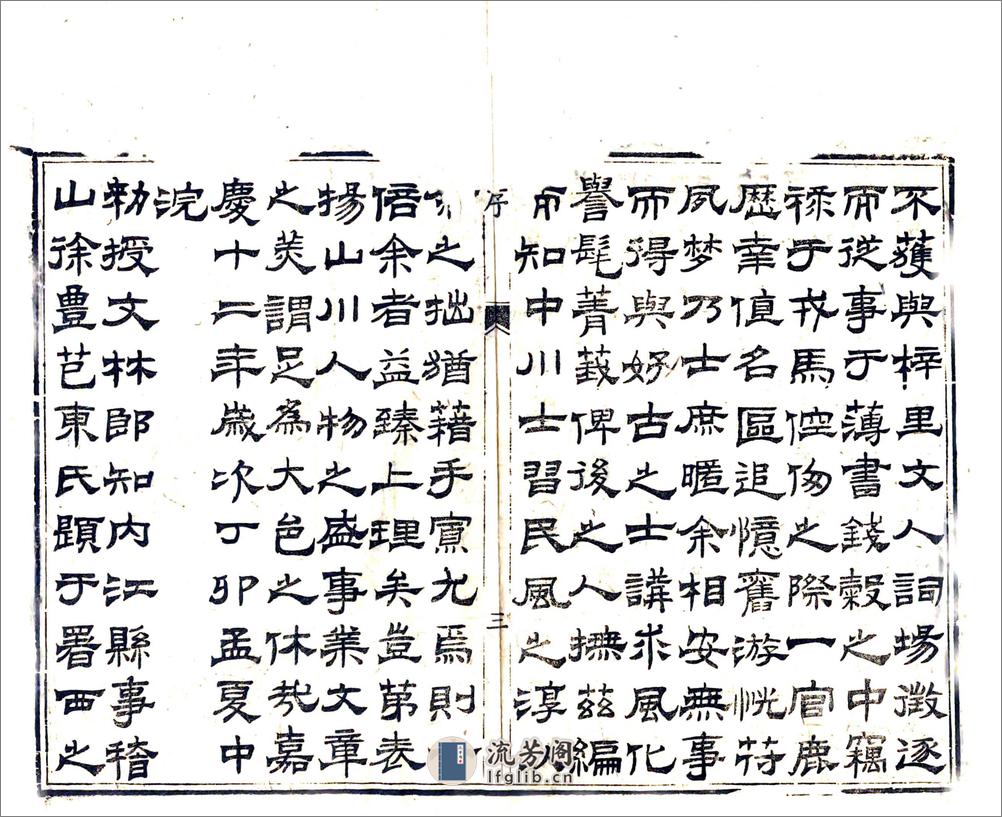 不獲與梓里文人詞場徵逐
而從事于薄書錢穀之中竊
祿于戎馬倥傯之際一官鹿
歷幸值名區追憶舊游恍符
夙梦乃士庶暱余相安無事
而得與好古之士講求風化
譽髦菁莪俾後之人撫茲編
而知中川士習民風之淳
序
三
之拙猶藉手寡尤焉則
信余者益臻上理矣豈第表
揚山川人物之盛事業文章
之美謂足為大邑之休哉嘉
慶十二年歲次丁卯孟夏中
浣
勑授文林郎知內江縣事稽
山徐豊芑東氏題于署西之
流芳阁
lfglib.cn